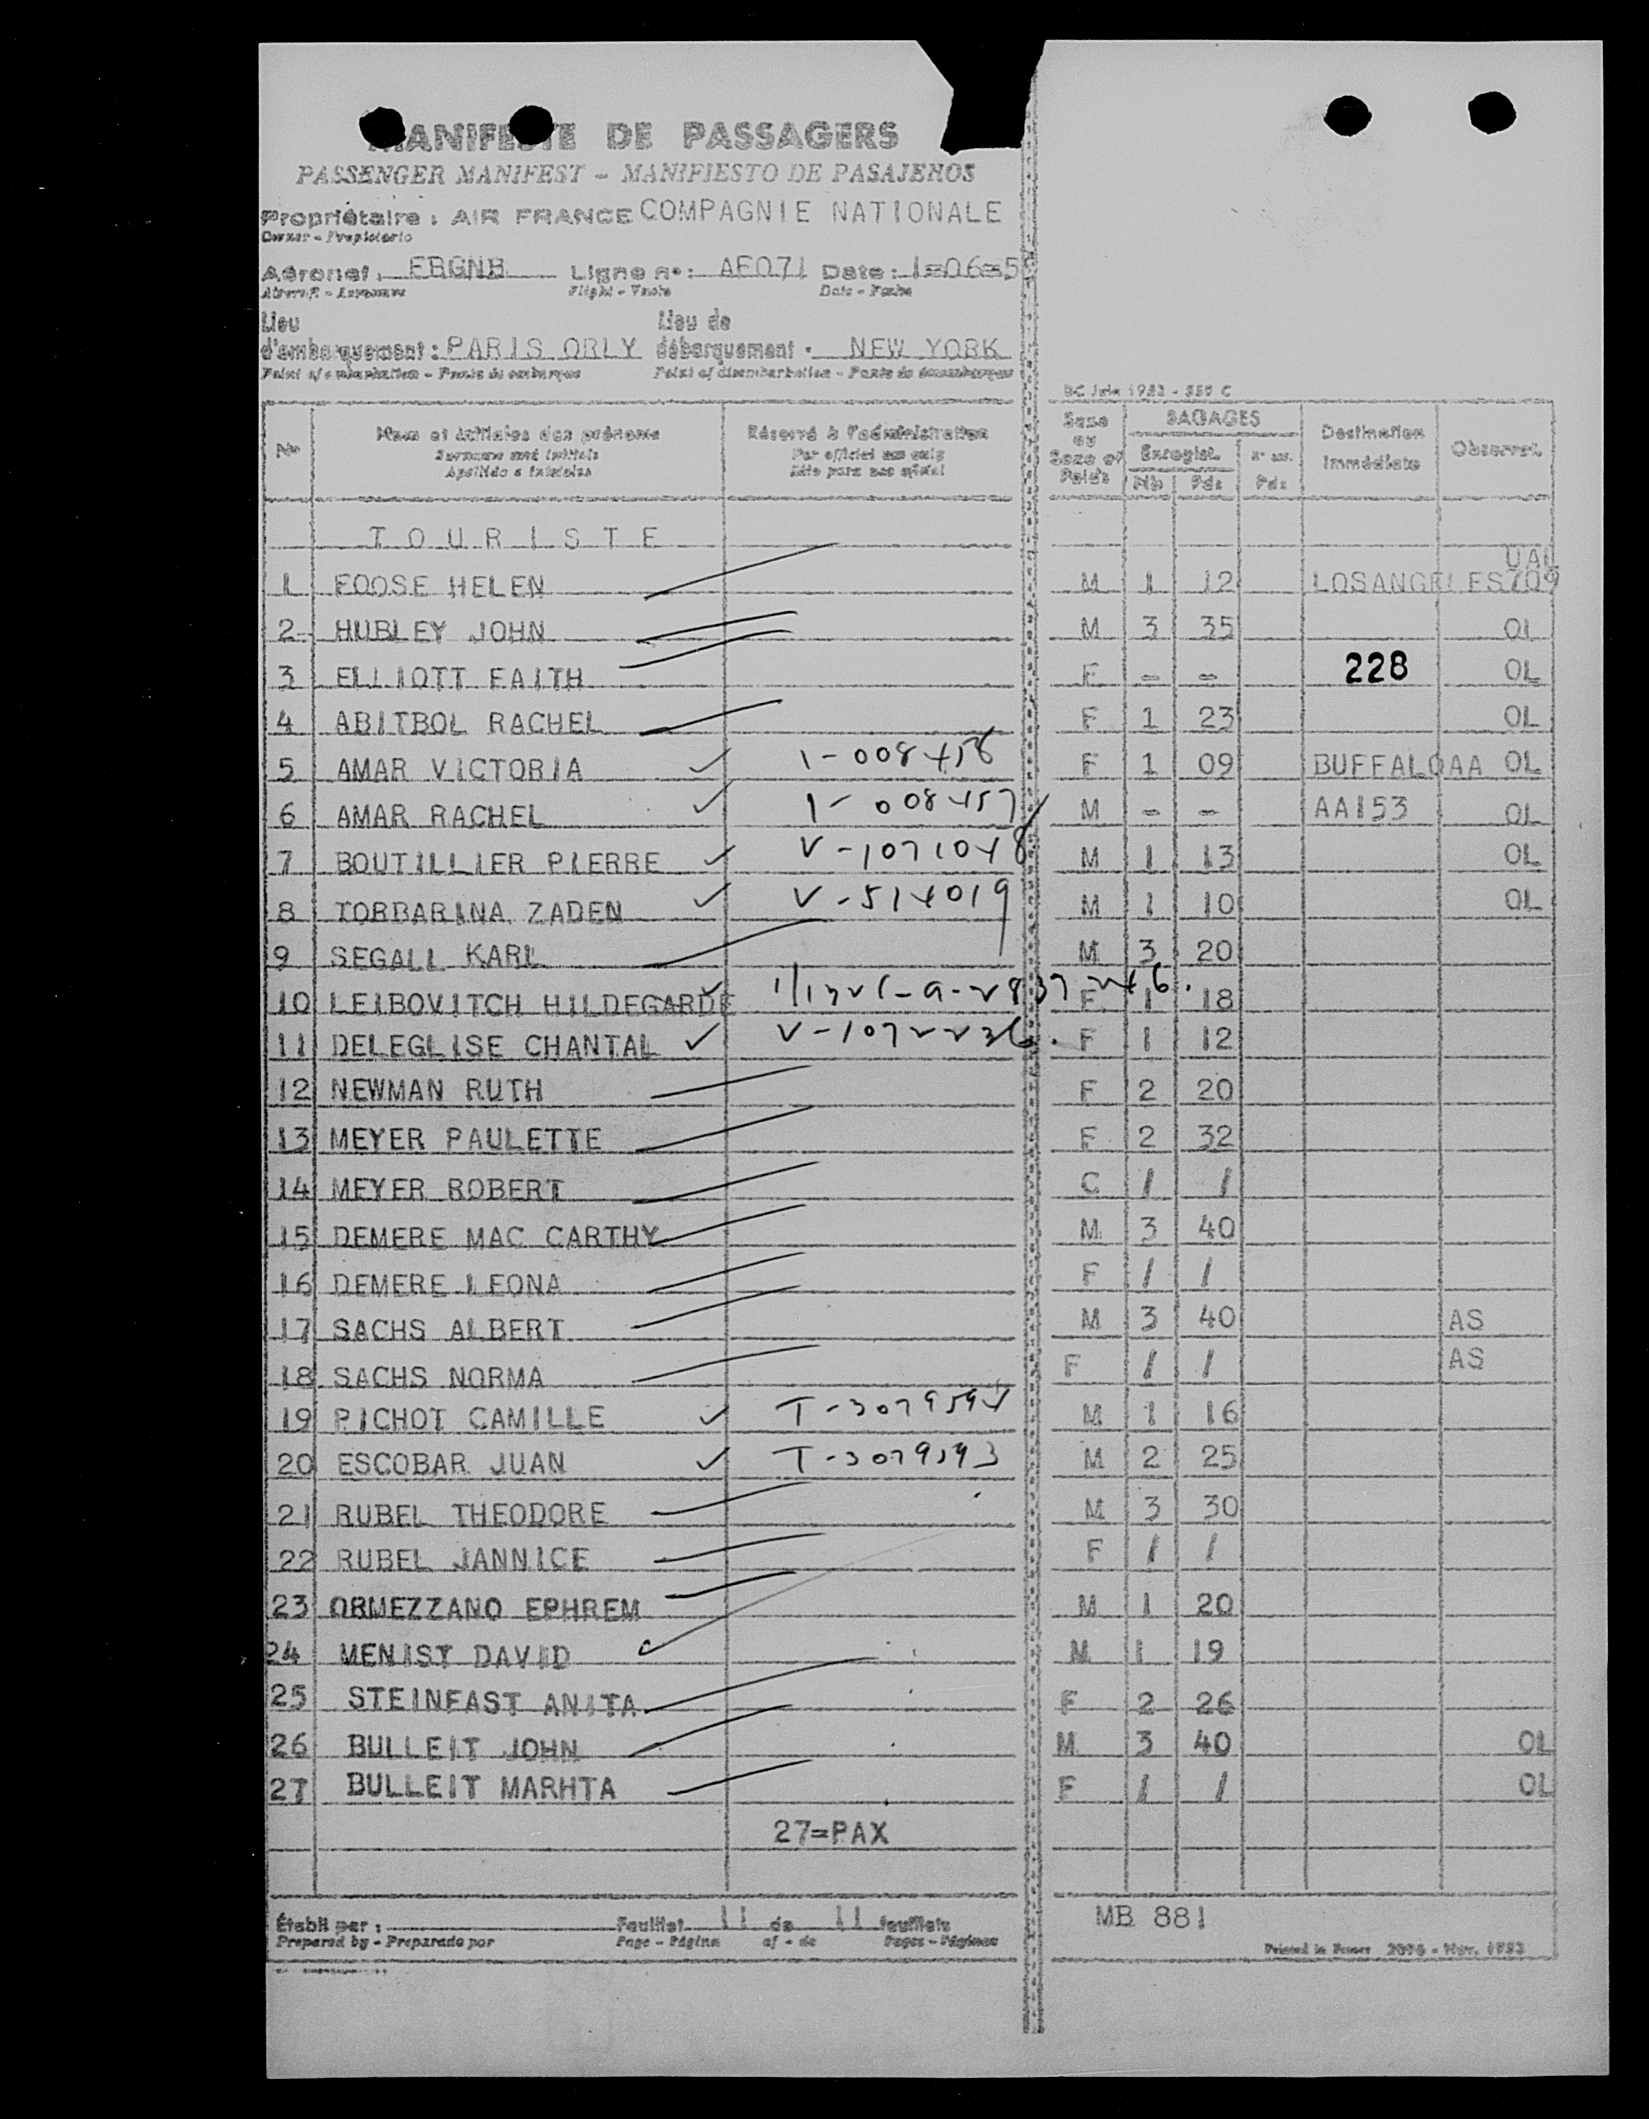 MANIFESTE DE PASSAGERS
PASSENGER MANIFEST - MANIFIESTO DE PASAJEROS
Propriétaire : AIR FRANCE COMPAGNIE NATIONALE
Owner - Propietario
Aéronef : FBGNB Ligne n° : AF071 Date : 1=06=5
Aircraft - Aeronave Flight - Vuelo Date - Fecha
Lieu Lieu de
d'embarquement : PARIS ORLY débarquement : NEW YORK
Point of embarkation - Punto de embarque Point of disembarkation - Punto de desembarque
Nos Nom et initiales des prénoms Réservé à l'administration Sexe ou Sexe et Poids BAGAGES Destination immédiate Observat.
Surname and initials For official use only Enregist.
Apellido e iniciales Nb Pds Pds
TOURISTE
UAL
1 FOOSE HELEN M 1 12 LOSANGELES709
2 HUBLEY JOHN M 3 35 OL
3 ELLIOTT FAITH F - - 228 OL
4 ABITBOL RACHEL F 1 23 OL
5 AMAR VICTORIA 1-008456 F 1 09 BUFFALOAA OL
6 AMAR RACHEL 1-008457 M - - AA153 OL
7 BOUTILLIER PIERRE V-1071048 M 1 13 OL
8 TORBARINA ZADEN V-514019 M 1 10 OL
9 SEGALL KARL M 3 20
10 LEIBOVITCH HILDEGARDE F 1 18
11 DELEGLISE CHANTAL V-1072236 F 1 12
12 NEWMAN RUTH F 2 20
13 MEYER PAULETTE F 2 32
14 MEYER ROBERT C / /
15 DEMERE MAC CARTHY M 3 40
16 DEMERE LEONA F / /
17 SACHS ALBERT M 3 40 AS
18 SACHS NORMA F / / AS
19 PICHOT CAMILLE T-3079594 M 1 16
20 ESCOBAR JUAN T-3079593 M 2 25
21 RUBEL THEODORE M 3 30
22 RUBEL JANNICE F / /
23 ORMEZZANO EPHREM M 1 20
24 MENIST DAVID M 1 19
25 STEINFAST ANITA F 2 26
26 BULLEIT JOHN M 3 40 OL
27 BULLEIT MARHTA F / / OL
27=PAX
Établi par : Feuillet 11 de 11 feuillets MB 881
Prepared by - Preparado por Page - Página of - de Pages - Páginas